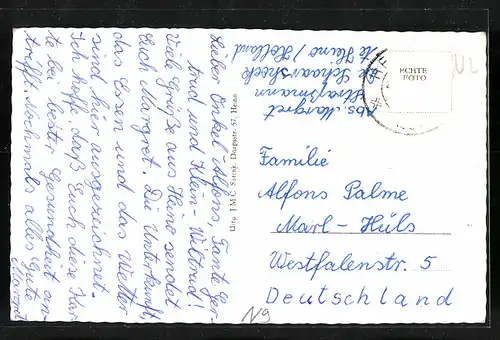 Lieber Onkel Alfons, Tante Ger-
trud und Klein-Wiltrud!
Viele Grüße aus Heino sendet
Euch Margret. Die Unterkunft,
das Essen und das Wetter
sind hier ausgezeichnet.
Ich hoffe, daß Euch diese Kar-
te bei bester Gesundheit an-
trifft. Nochmals alles Gute
Margret
Uitg. J M C Dorpstr. 57, Heino
Abs. Margret
Straßmann
Schaarshoek
te Heino / Holland
ECHTE
FOTO
Familie
Alfons Palme
Marl-Hüls
Westfalenstr. 5
Deutschland
N9